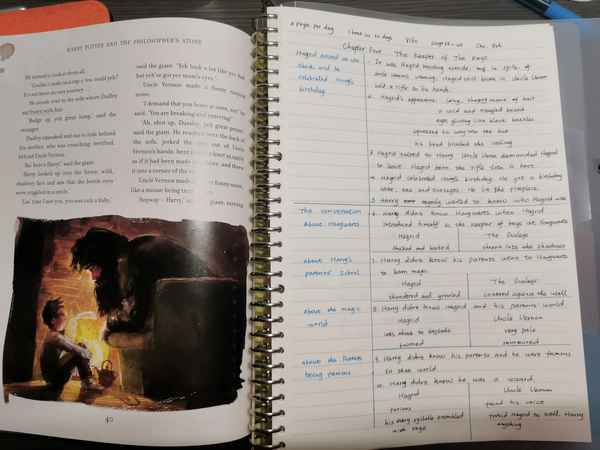 HARRY POTTER AND THE PHILOSOPHER'S STONE
an' sit round."
It's not been an easy journey —
stranger.
his mother, who was crouching, terrified,
behind Uncle Vernon.
'An' here's Harry!' said the giant.
Harry looked up into the fierce, wild,
'Las' time I saw you, you was only a baby,'
said the giant. 'Yeh look a lot like yer dad,
but yeh've got yer mum's eyes.'
Uncle Vernon made a funny rasping
noise.
'I demand that you leave at once, sir!' he
said. 'You are breaking and entering!'
'Ah, shut up, Dursley, yeh great prune,'
said the giant. He reached over the back of
the sofa, jerked the gun out of Uncle
Vernon's hands, bent it into a knot as easily
as if it had been made of rubber, and threw
it into a corner of the room.
Uncle Vernon made another funny noise,
like a mouse being trodden on.
'Anyway – Harry,' said the giant, turning
40
a page per day
Chapter Four The Keeper of The Keys
Hagrid arrived at the
shack and he
celebrated Harry's
birthday
1. It was Hagrid knocking outside, and in spite of
Uncle Vernon's warning, Hagrid still broke in. Uncle Vernon
held a rifle in his hands.
2. Hagrid's appearance: long, shaggy mane of hair
a wild and tangled beard
eyes glinting like black beetles
his head brushed the ceiling
3. Hagrid talked to Harry. Uncle Vernon demanded Hagrid
to leave. Hagrid bent the rifle
4. Hagrid celebrated Harry's birthday. He got a birthday
cake, tea and sausages. He lit the fireplace.
5. Harry wanted to know who Hagrid was
The conversation
About Hogwarts
6. Harry didn't know Hogwarts when Hagrid
introduced himself as the keeper of keys at Hogwarts
Hagrid
The Dursleys
shrank into the shadows
About Harry's
parents' school
7. Harry didn't know his parents went to Hogwarts
to learn magic
Hagrid
The Dursleys
thundered and growled
cowered against the wall
About the magic
world
8. Harry didn't know Hagrid and his parents' world
Hagrid
Uncle Vernon
was about to explode
very pale
boomed
About the Potters
being famous
9. Harry didn't know his parents and he were famous
in their world
10. Harry didn't know he was a wizard
Hagrid
Uncle Vernon
furious
found his voice
his every syllable trembled
with rage
forbid Hagrid to tell Harry
anything